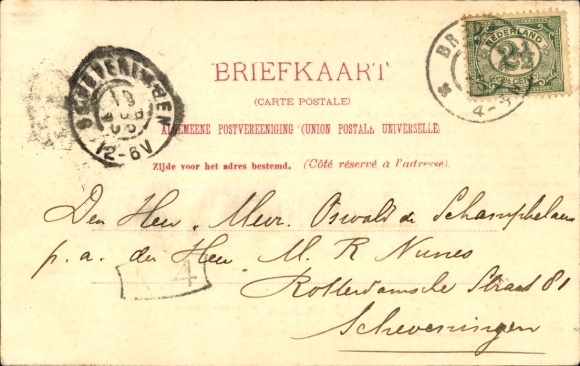 BR
NEDERLAND
2½
CENT
4-
SCHEVENINGEN
12-6V
BRIEFKAART
(CARTE POSTALE)
ALGEMEENE POSTVEREENIGING (UNION POSTALE UNIVERSELLE)
Zijde voor het adres bestemd. (Côté réservé à l'adresse).
Den Heer Mevr. Oswald de Schamphelaere
p.a. den Heer M. R Nunes
4
Rotterdamsche Straat 81
Scheveningen